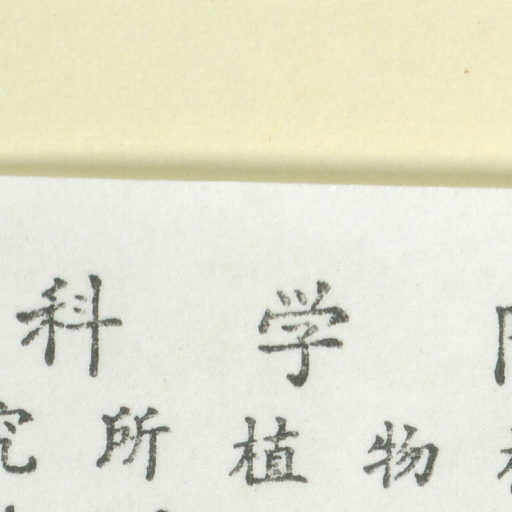 科学
究所植物